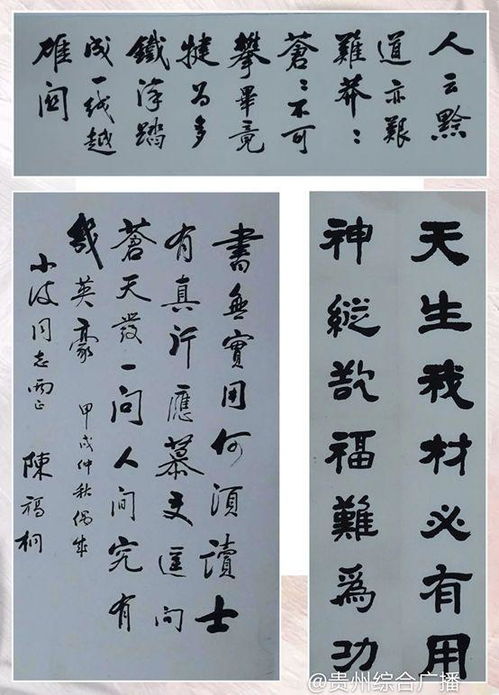 人云黔
道亦艱
難莽:
蒼:不可
攀畢竟
犍为多
鐵漢踏
成一线越
雄関
書無實用何須讀士
有真行應慕问
蒼天發一问人间究有
幾英豪 甲戌仲秋偶成
小波同志两正 陳福桐
天生我材必有用
神縱欲福難為功
@贵州综合广播